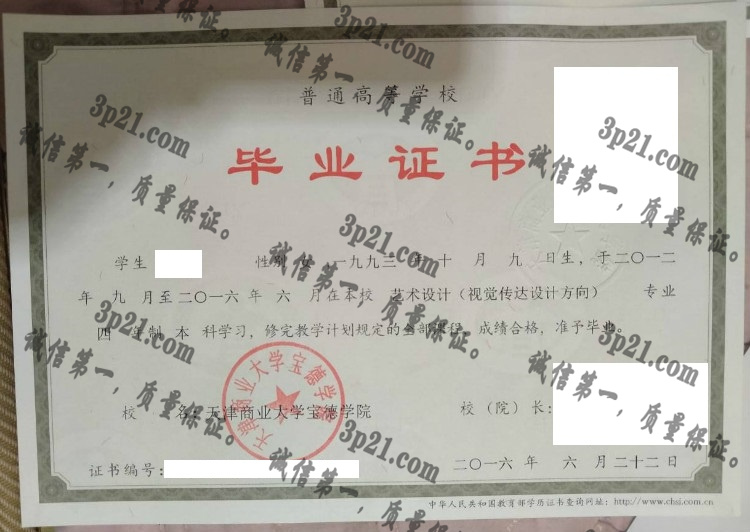 普通高等学校
毕业证书
学生 性别 女 一九九三 年 十 月 九 日生，于二〇一二
年 九 月至二〇一六年 六 月在本校 艺术设计（视觉传达设计方向） 专业
四 年制 本 科学习，修完教学计划规定的全部课程，成绩合格，准予毕业。
校 名：天津商业大学宝德学院 校（院）长：
证书编号： 二〇一六年 六 月二十二日
中华人民共和国教育部学历证书查询网址：http://www.chsi.com.cn
天津商业大学宝德学院
3p21.com
诚信第一，质量保证。
3p21.com
诚信第一，质量保证。
3p21.com
诚信第一，质量保证。
3p21.com
诚信第一，质量保证。
3p21.com
诚信第一，质量保证。
3p21.com
诚信第一，质量保证。
3p21.com
诚信第一，质量保证。